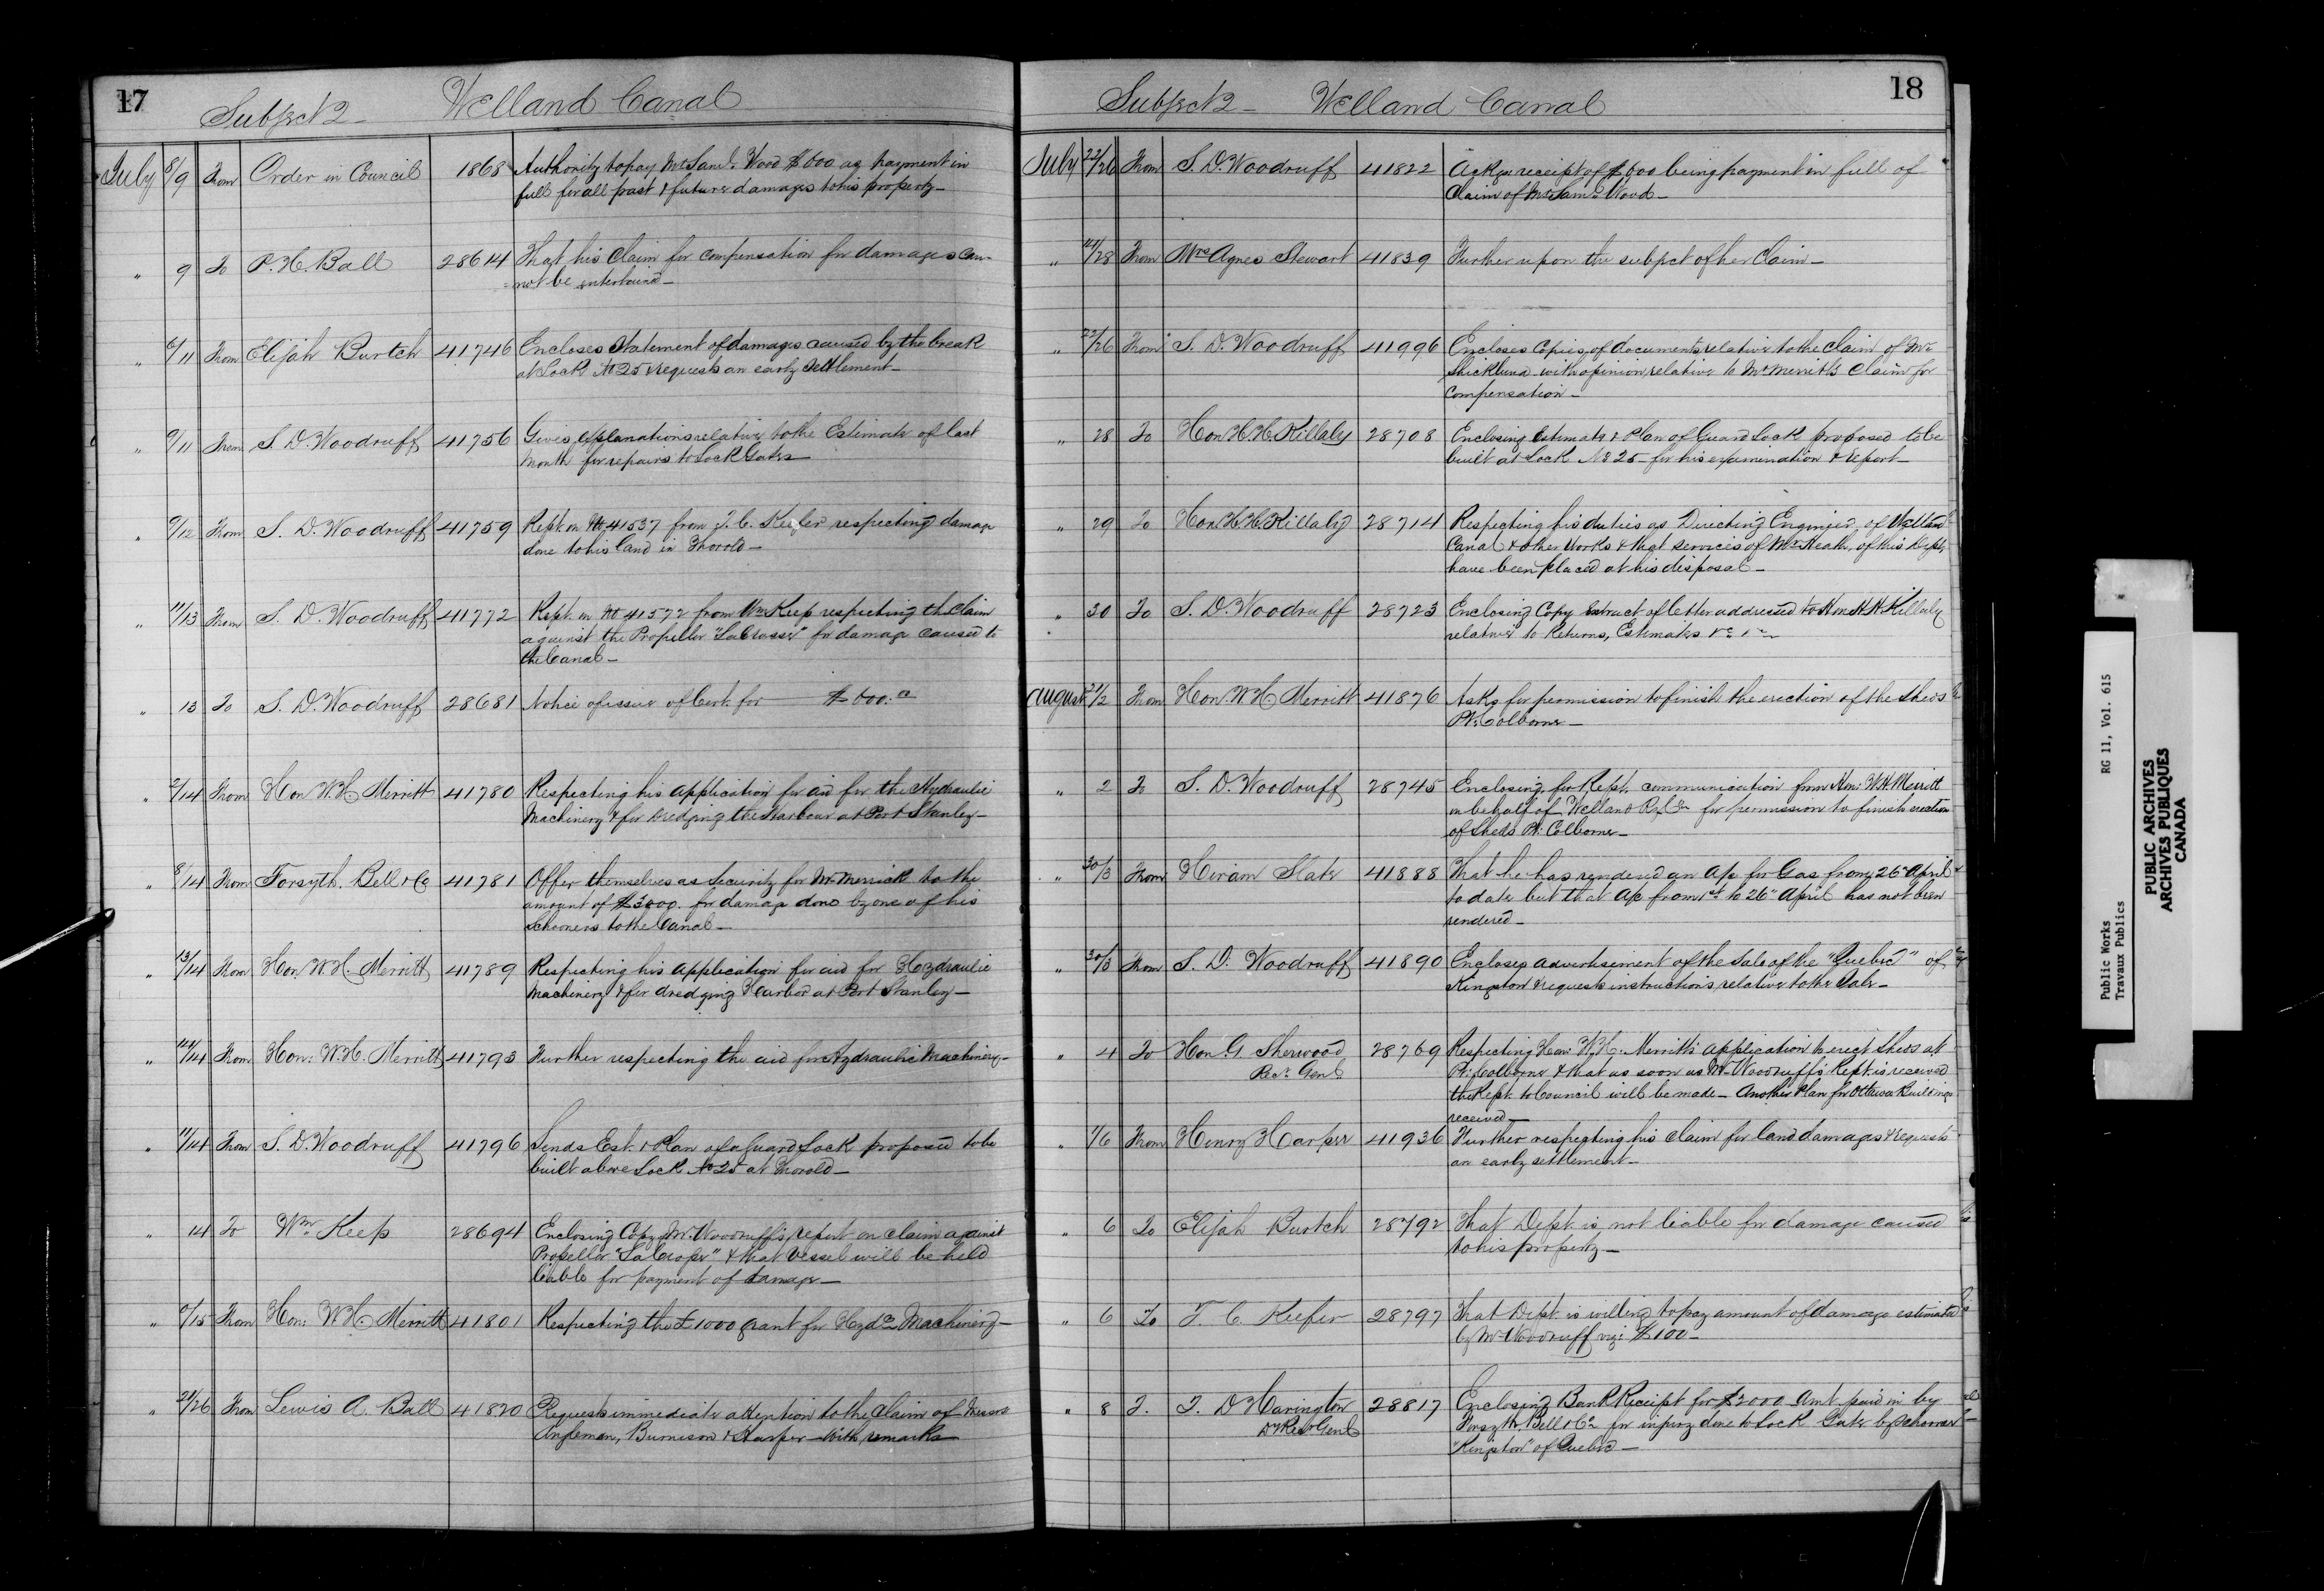 17
Subject 2 - Welland Canal
July 8/9 From Order in Council 1868 Authority to pay Mr Saml. Wood $600 as payment in
full for all past & future damages to his property -
" 9 To P. H. Ball 28614 That his Claim for compensation for damages can-
=not be entertained -
" 6/11 From Elijah Burtch 41746 Encloses Statement of damages caused by the break
at Lock No 25 & requests an early settlement -
" 9/11 From S. D. Woodruff 41756 Gives explanations relative to the Estimate of last
Month for repairs to Lock Gates
" 9/12 From S. D. Woodruff 41759 Rept. on No 41537 from T. C. Keefer respecting damage
done to his land in Thorold -
" 11/13 From S. D. Woodruff 41772 Rept. on No 41572 from Wm Keep respecting the Claim
against the Propeller "LaCrosse" for damage caused to
the Canal -
" 13 To S. D. Woodruff 28681 Notice of issue of Cert. for $600.00
" 2/14 From Hon W. H. Merritt 41780 Respecting his application for aid for the Hydraulic
Machinery & for dredging the Harbour at Port Stanley -
" 8/14 From Forsyth, Bell & Co 41781 Offer themselves as Security for Mr Merrick to the
amount of $3000. for damage done by one of his
Schooners to the Canal -
" 13/14 From Hon W. H. Merritt 41789 Respecting his application for aid for Hydraulic
Machinery & for dredging Harbor at Port Stanley -
" 14/14 From Hon: W. H. Merritt 41793 Further respecting the aid for Hydraulic Machinery -
" 11/14 From S. D. Woodruff 41796 Sends Est. & Plan of a Guard Lock proposed to be
built above Lock No 25 at Thorold -
" 14 To Wm Keep 28694 Enclosing Copy Mr. Woodruff's report on claim against
Propeller "LaCrosse" & that Vessel will be held
liable for payment of damage -
" /15 From Hon: W. H. Merritt 41801 Respecting the £1000 grant for Hydc Machinery -
" 24/26 From Lewis A. Ball 41820 Requests immediate attention to the Claim of Messrs
Angleman, Burnison & Harper - with remarks
18
Subject 2 - Welland Canal
July 22/26 From S. D. Woodruff 41822 Ackgs receipt of $600 being payment in full of
Claim of Mr Saml. Wood -
" 21/28 From Mrs Agnes Stewart 41839 Further upon the subject of her Claim -
" 22/26 From S. D. Woodruff 41996 Encloses Copies of documents relative to the Claim of Mr
Shickluna - with opinion relative to Mr Merritt's Claim for
Compensation -
" 28 To Hon H. H. Killaly 28708 Enclosing Estimate & Plan of Guard Lock proposed to be
built at Lock No 25 - for his examination & report -
" 29 To Hon H. H. Killaly 28714 Respecting his duties as Directing Engineer, of Welland
Canal & other Works & that services of Mr Heath, of this Dept.
have been placed at his disposal -
" 30 To S. D. Woodruff 28723 Enclosing Copy Extract of letter addressed to Hon H. H. Killaly
relative to Returns, Estimates &c &c
August 21/2 From Hon. W. H. Merritt 41876 Asks for permission to finish the erection of the Sheds
Pt. Colborne -
" 2 To S. D. Woodruff 28745 Enclosing for Rept. communication from Hon: W. H. Merritt
on behalf of Welland Ry Co for permission to finish erection
of Sheds Pt. Colborne -
" 30/3 From Hiram Slate 41888 That he has rendered an a/c for Gas from 26" April
to date but that a/c from 1st to 26" April has not been
rendered -
" 30/3 From S. D. Woodruff 41890 Encloses advertisement of the Sale of the "Quebec" of
Kingston & requests instructions relative to the Sale -
" 4 To Hon. G. Sherwood 28769 Respecting Hon: W. H. Merritt's application to erect Sheds at
Recr. Genl. Pt. Colborne & that as soon as Mr Woodruff's Rept. is received
the Rept. to Council will be made - Another Plan for Ottawa Buildings
received -
" 1/6 From Henry Harper 41936 Further respecting his claim for land damages & requests
an early settlement -
" 6 To Elijah Burtch 28792 That Dept. is not liable for damage caused
to his property -
" 6 To T. C. Keefer 28797 That Dept. is willing to pay amount of damage estimated
by Mr Woodruff viz: $100 -
" 8 T. T. D Harington 28817 Enclosing Bank Receipt for $2000 Amt. paid in by
Dy Recr Genl Forsyth, Bell & Co for injury done to Lock Gates by Schooner
"Kingston" of Quebec -
Public Works RG 11, Vol. 615
Travaux Publics
PUBLIC ARCHIVES
ARCHIVES PUBLIQUES
CANADA